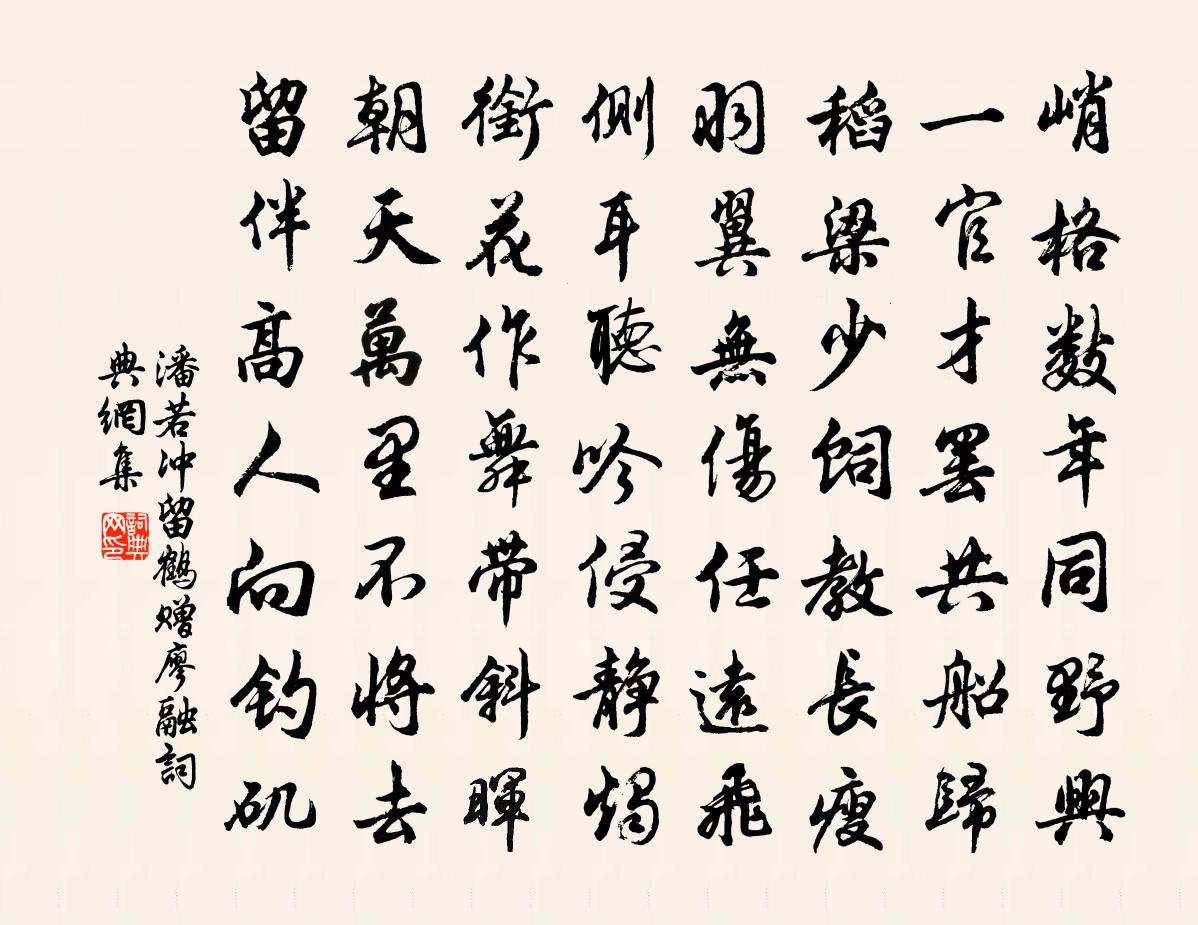 峭格數年同野興
一官才罢共船歸
稻梁少飼教長瘦
羽翼無傷任遠飛
側耳聽吟侵静燭
銜花作舞帶斜暉
朝天萬里不將去
留伴高人向釣矶
潘若冲留鶴赠廖融詞
典網集
詞典
网印